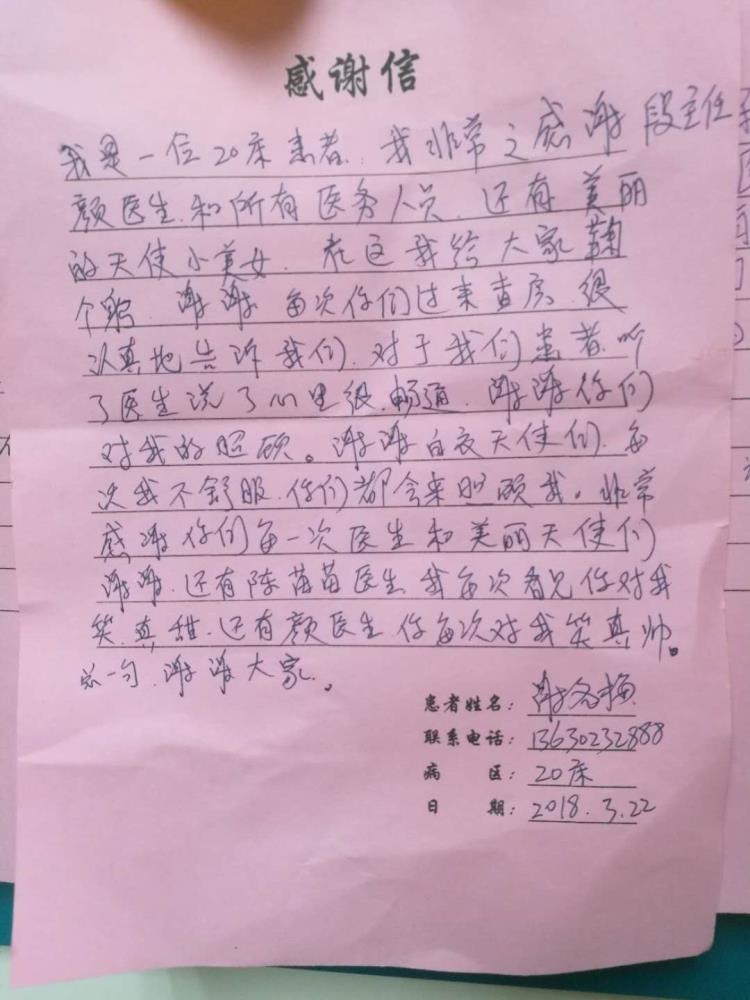 感谢信
我是一位20床患者.我非常之感谢段主任
颜医生.和所有医务人员.还有美丽
的天使小美女.在这我给大家鞠
个躬.谢谢.每次你们过来查房.很
认真地告诉我们.对于我们患者.听
了医生说了心里很.畅通.谢谢你们
对我的照顾。谢谢白衣天使们.每
次我不舒服.你们都会来照顾我。非常
感谢你们每一次医生和美丽天使们
谢谢.还有陈苗苗医生.我每次看见你对我
笑.真甜.还有颜医生.你每次对我笑真帅。
总一句.谢谢大家。
患者姓名：谢
联系电话：13630232888
病区：20床
日期：2018.3.22